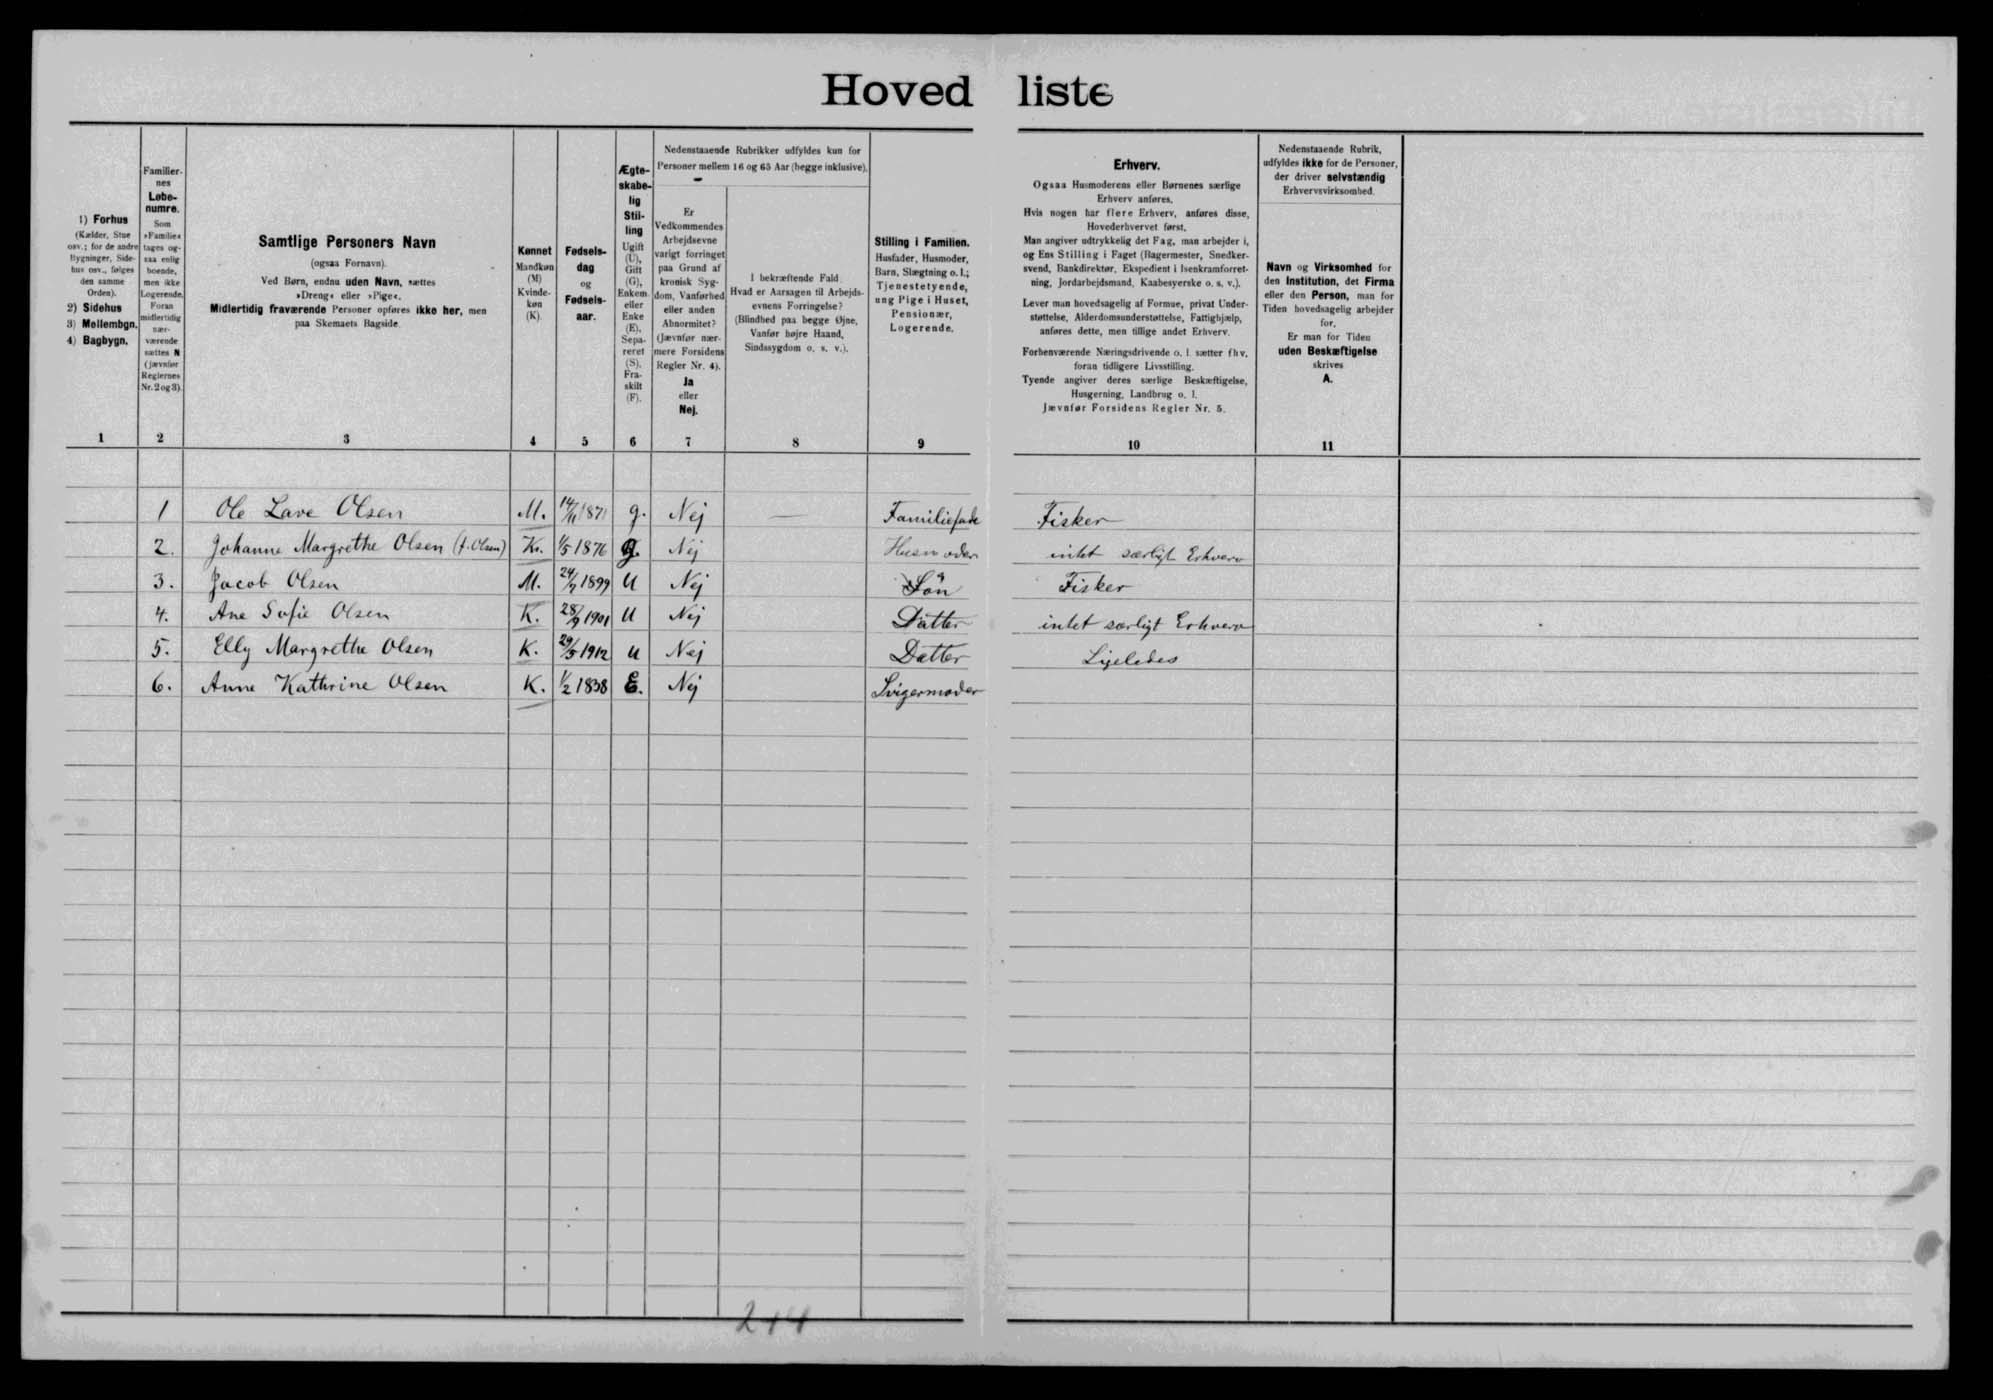 Hovedliste
1) Forhus
(Kælder, Stue
osv.; for de andre
Bygninger, Side-
hus osv., følges
den samme
Orden).
2) Sidehus
3) Mellembgn.
4) Bagbygn.
Familier-
nes
Løbe-
numre.
Som
»Familie«
tages og-
saa enlig
boende,
men ikke
Logerende.
Foran
midlertidig
nær-
værende
sættes N
(jævnfør
Reglernes
Nr. 2 og 3).
Samtlige Personers Navn
(ogsaa Fornavn).
Ved Børn, endnu uden Navn, sættes
»Dreng« eller »Pige«.
Midlertidig fraværende Personer opføres ikke her, men
paa Skemaets Bagside.
Kønnet
Mandkøn
(M)
Kvinde-
køn
(K).
Fødsels-
dag
og
Fødsels-
aar.
Ægte-
skabe-
lig
Stil-
ling
Ugift
(U),
Gift
(G),
Enkem.
eller
Enke
(E),
Sepa-
reret
(S),
Fra-
skilt
(F).
Nedenstaaende Rubrikker udfyldes kun for
Personer mellem 16 og 65 Aar (begge inklusive).
Er
Vedkommendes
Arbejdsevne
varigt forringet
paa Grund af
kronisk Syg-
dom, Vanførhed
eller anden
Abnormitet?
(Jævnfør nær-
mere Forsidens
Regler Nr. 4).
Ja
eller
Nej.
I bekræftende Fald:
Hvad er Aarsagen til Arbejds-
evnens Forringelse?
(Blindhed paa begge Øjne,
Vanfør højre Haand,
Sindssygdom o. s. v.).
Stilling i Familien.
Husfader, Husmoder,
Barn, Slægtning o. l.;
Tjenestetyende,
ung Pige i Huset,
Pensionær,
Logerende.
Erhverv.
Ogsaa Husmoderens eller Børnenes særlige
Erhverv anføres.
Hvis nogen har flere Erhverv, anføres disse,
Hovederhvervet først.
Man angiver udtrykkelig det Fag, man arbejder i,
og Ens Stilling i Faget (Bagermester, Snedker-
svend, Bankdirektør, Ekspedient i Isenkramforret-
ning, Jordarbejdsmand, Kaabesyerske o. s. v.).
Lever man hovedsagelig af Formue, privat Under-
støttelse, Alderdomsunderstøttelse, Fattighjælp,
anføres dette, men tillige andet Erhverv.
Forhenværende Næringsdrivende o. l. sætter fhv.
foran tidligere Livsstilling.
Tyende angiver deres særlige Beskæftigelse,
Husgerning, Landbrug o. l.
Jævnfør Forsidens Regler Nr. 5.
Nedenstaaende Rubrik,
udfyldes ikke for de Personer,
der driver selvstændig
Erhvervsvirksomhed.
Navn og Virksomhed for
den Institution, det Firma
eller den Person, man for
Tiden hovedsagelig arbejder
for.
Er man for Tiden
uden Beskæftigelse
skrives
A.
1 2 3 4 5 6 7 8 9 10 11
1 Ole Lave Olsen M. 14/11 1871 g. Nej — Familiefade Fisker
2. Johanne Margrethe Olsen (f. Olsen) K. 1/5 1876 g. Nej Husmoder intet særligt Erhverv
3. Jacob Olsen M. 24/7 1899 U Nej Søn Fisker
4. Ane Sofie Olsen K. 28/9 1901 U Nej Datter intet særligt Erhverv
5. Elly Margrethe Olsen K. 29/5 1912 U Nej Datter Ligeledes
6. Anne Kathrine Olsen K. 1/2 1838 E. Nej Svigermoder